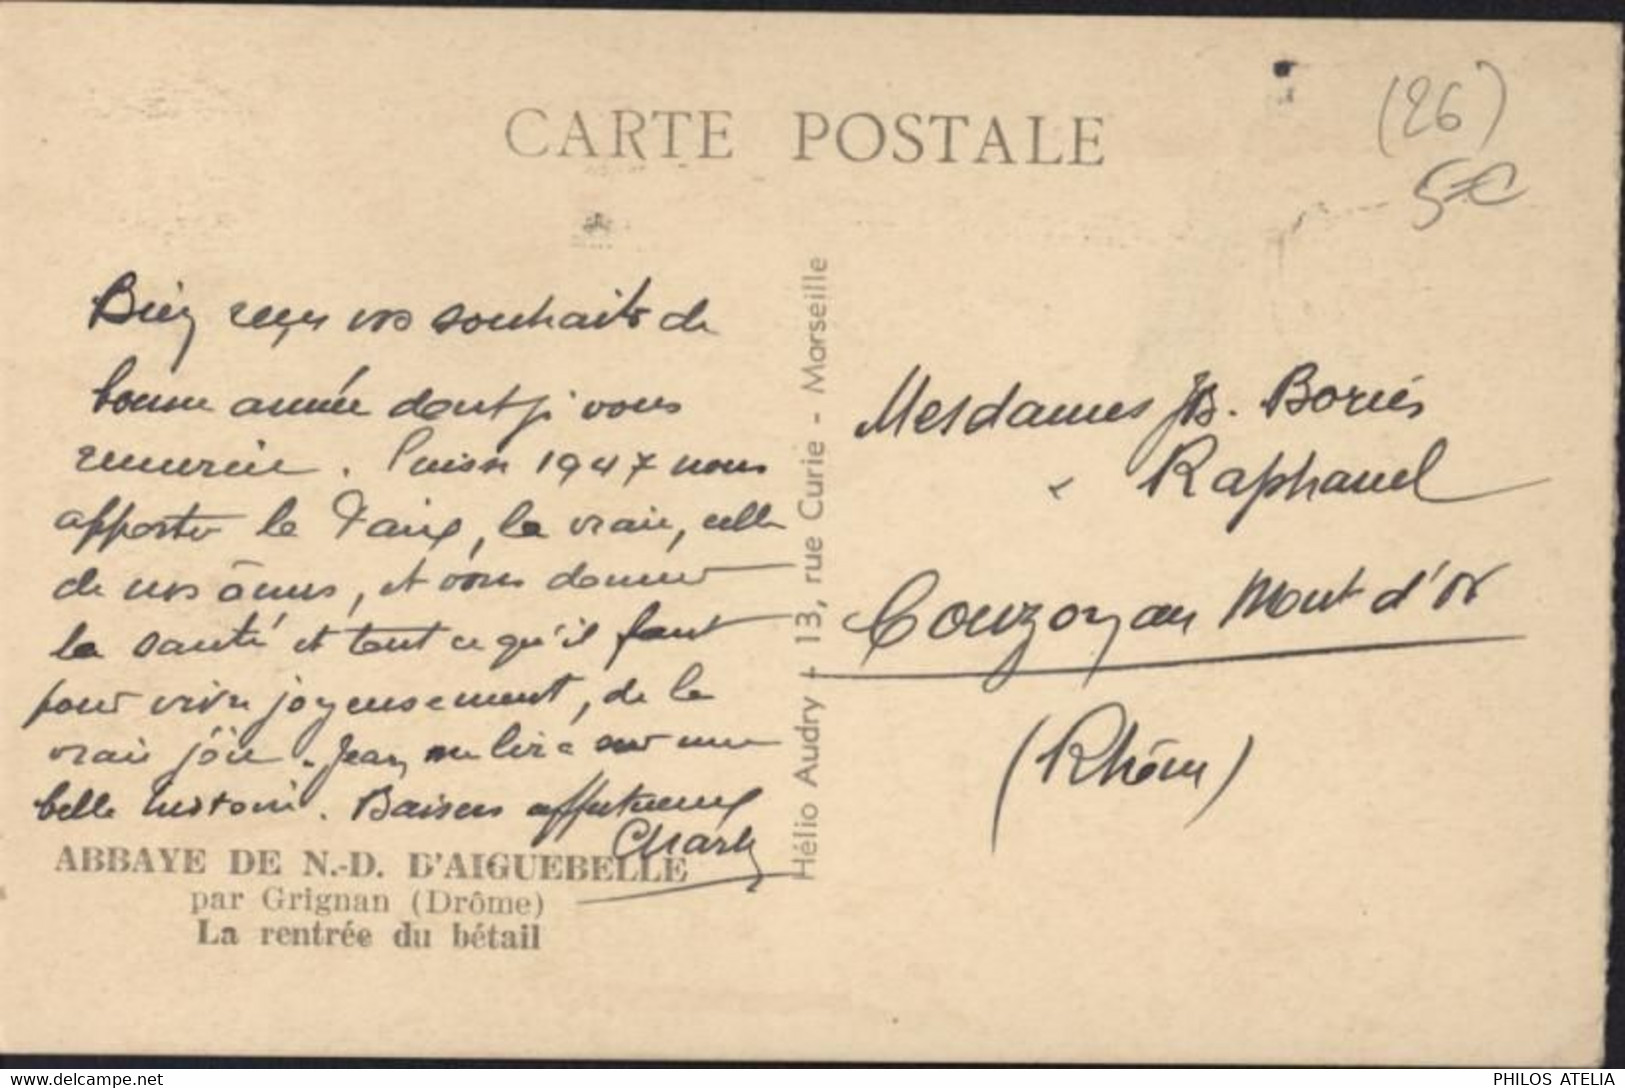 CARTE POSTALE
(26)
5€
Bien reçu vos souhaits de
bonne année dont je vous
remercie. Puisse 1947 nous
apporter la Paix, la vraie, celle
de nos âmes, et vous donner
la santé et tout ce qu'il faut
pour vivre joyeusement, de la
vraie joie. Jean
belle histoire. Baisers affectueux
Charly
ABBAYE DE N.-D. D'AIGUEBELLE
par Grignan (Drôme)
La rentrée du bétail
Hélio Audry - 13, rue Curie - Marseille
Mesdames JB. Boriés
" Raphanel
Couzon au Mont d'or
(Rhône)
PHILOS ATELIA
www.delcampe.net